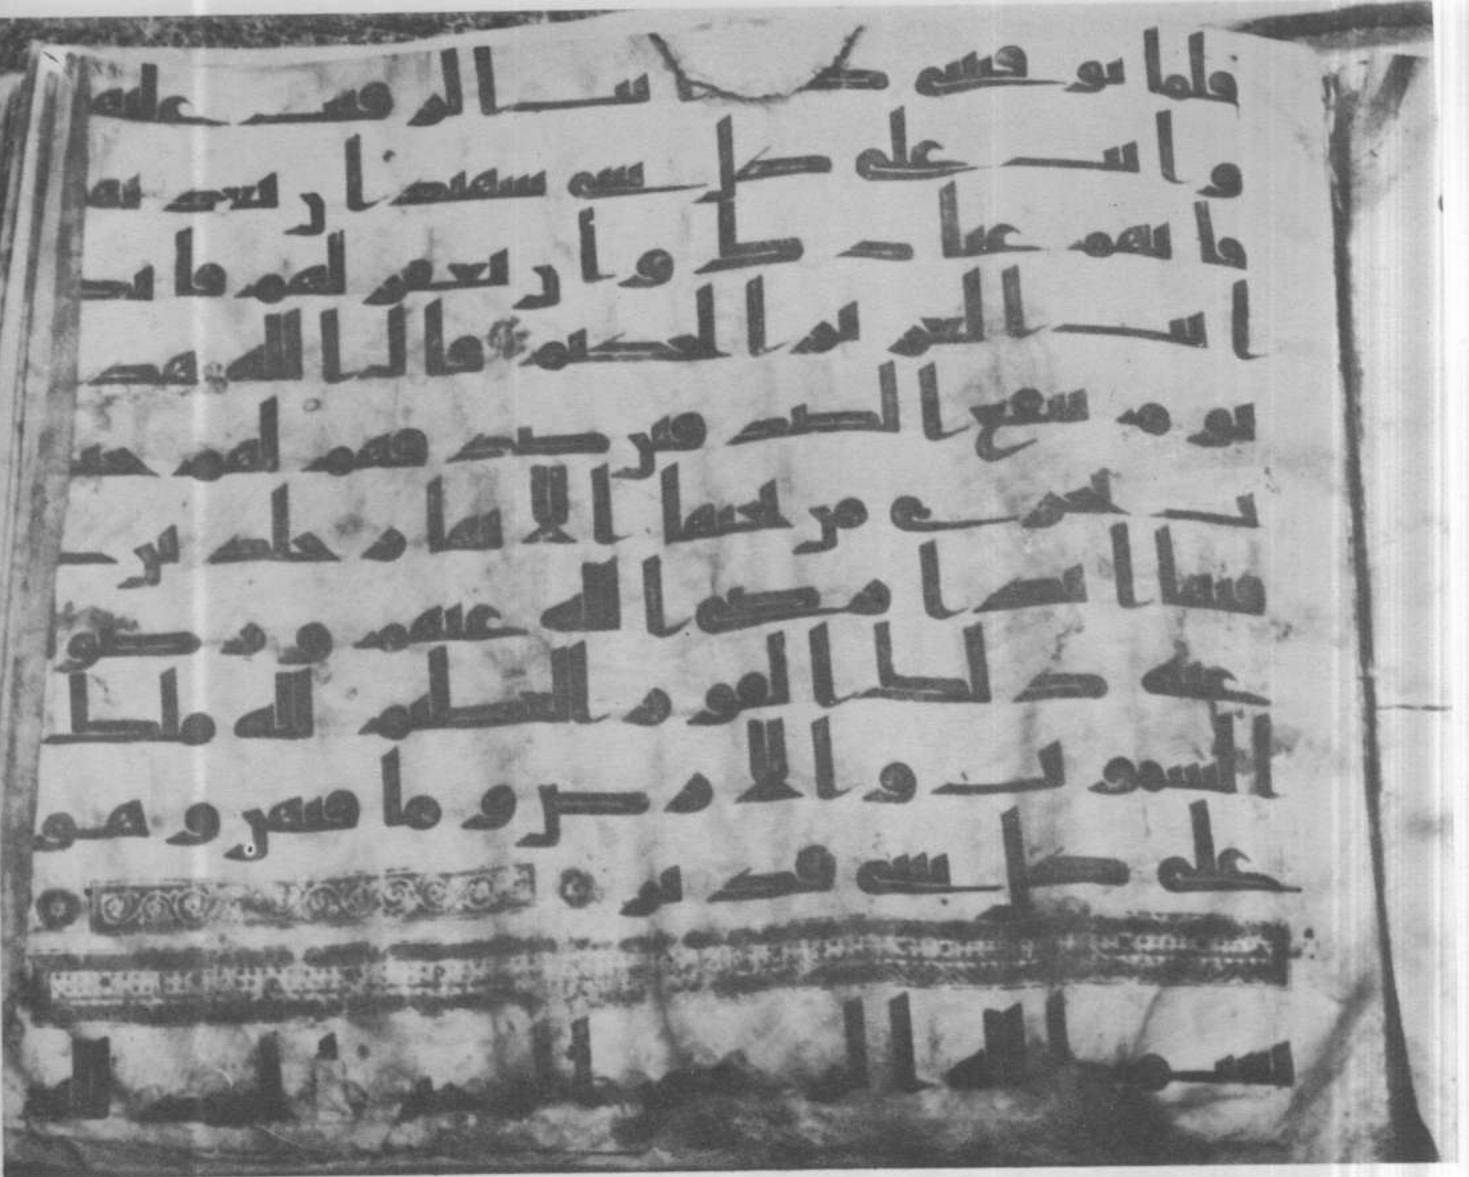 فلما توفيتني كنت انت الرقيب عليهم
وانت على كل شي شهيد ان تعذبهم
فانهم عبادك وان تغفر لهم فانك
انت العزيز الحكيم قال الله هذا
يوم ينفع الصدقين صدقهم لهم جنـ
ـت تجري من تحتها الانهر خلدين
فيها ابدا رضي الله عنهم ورضوا
عنه ذلك الفوز العظيم لله ملك
السموت والارض وما فيهن وهو
على كل شي قدير
بسم الله